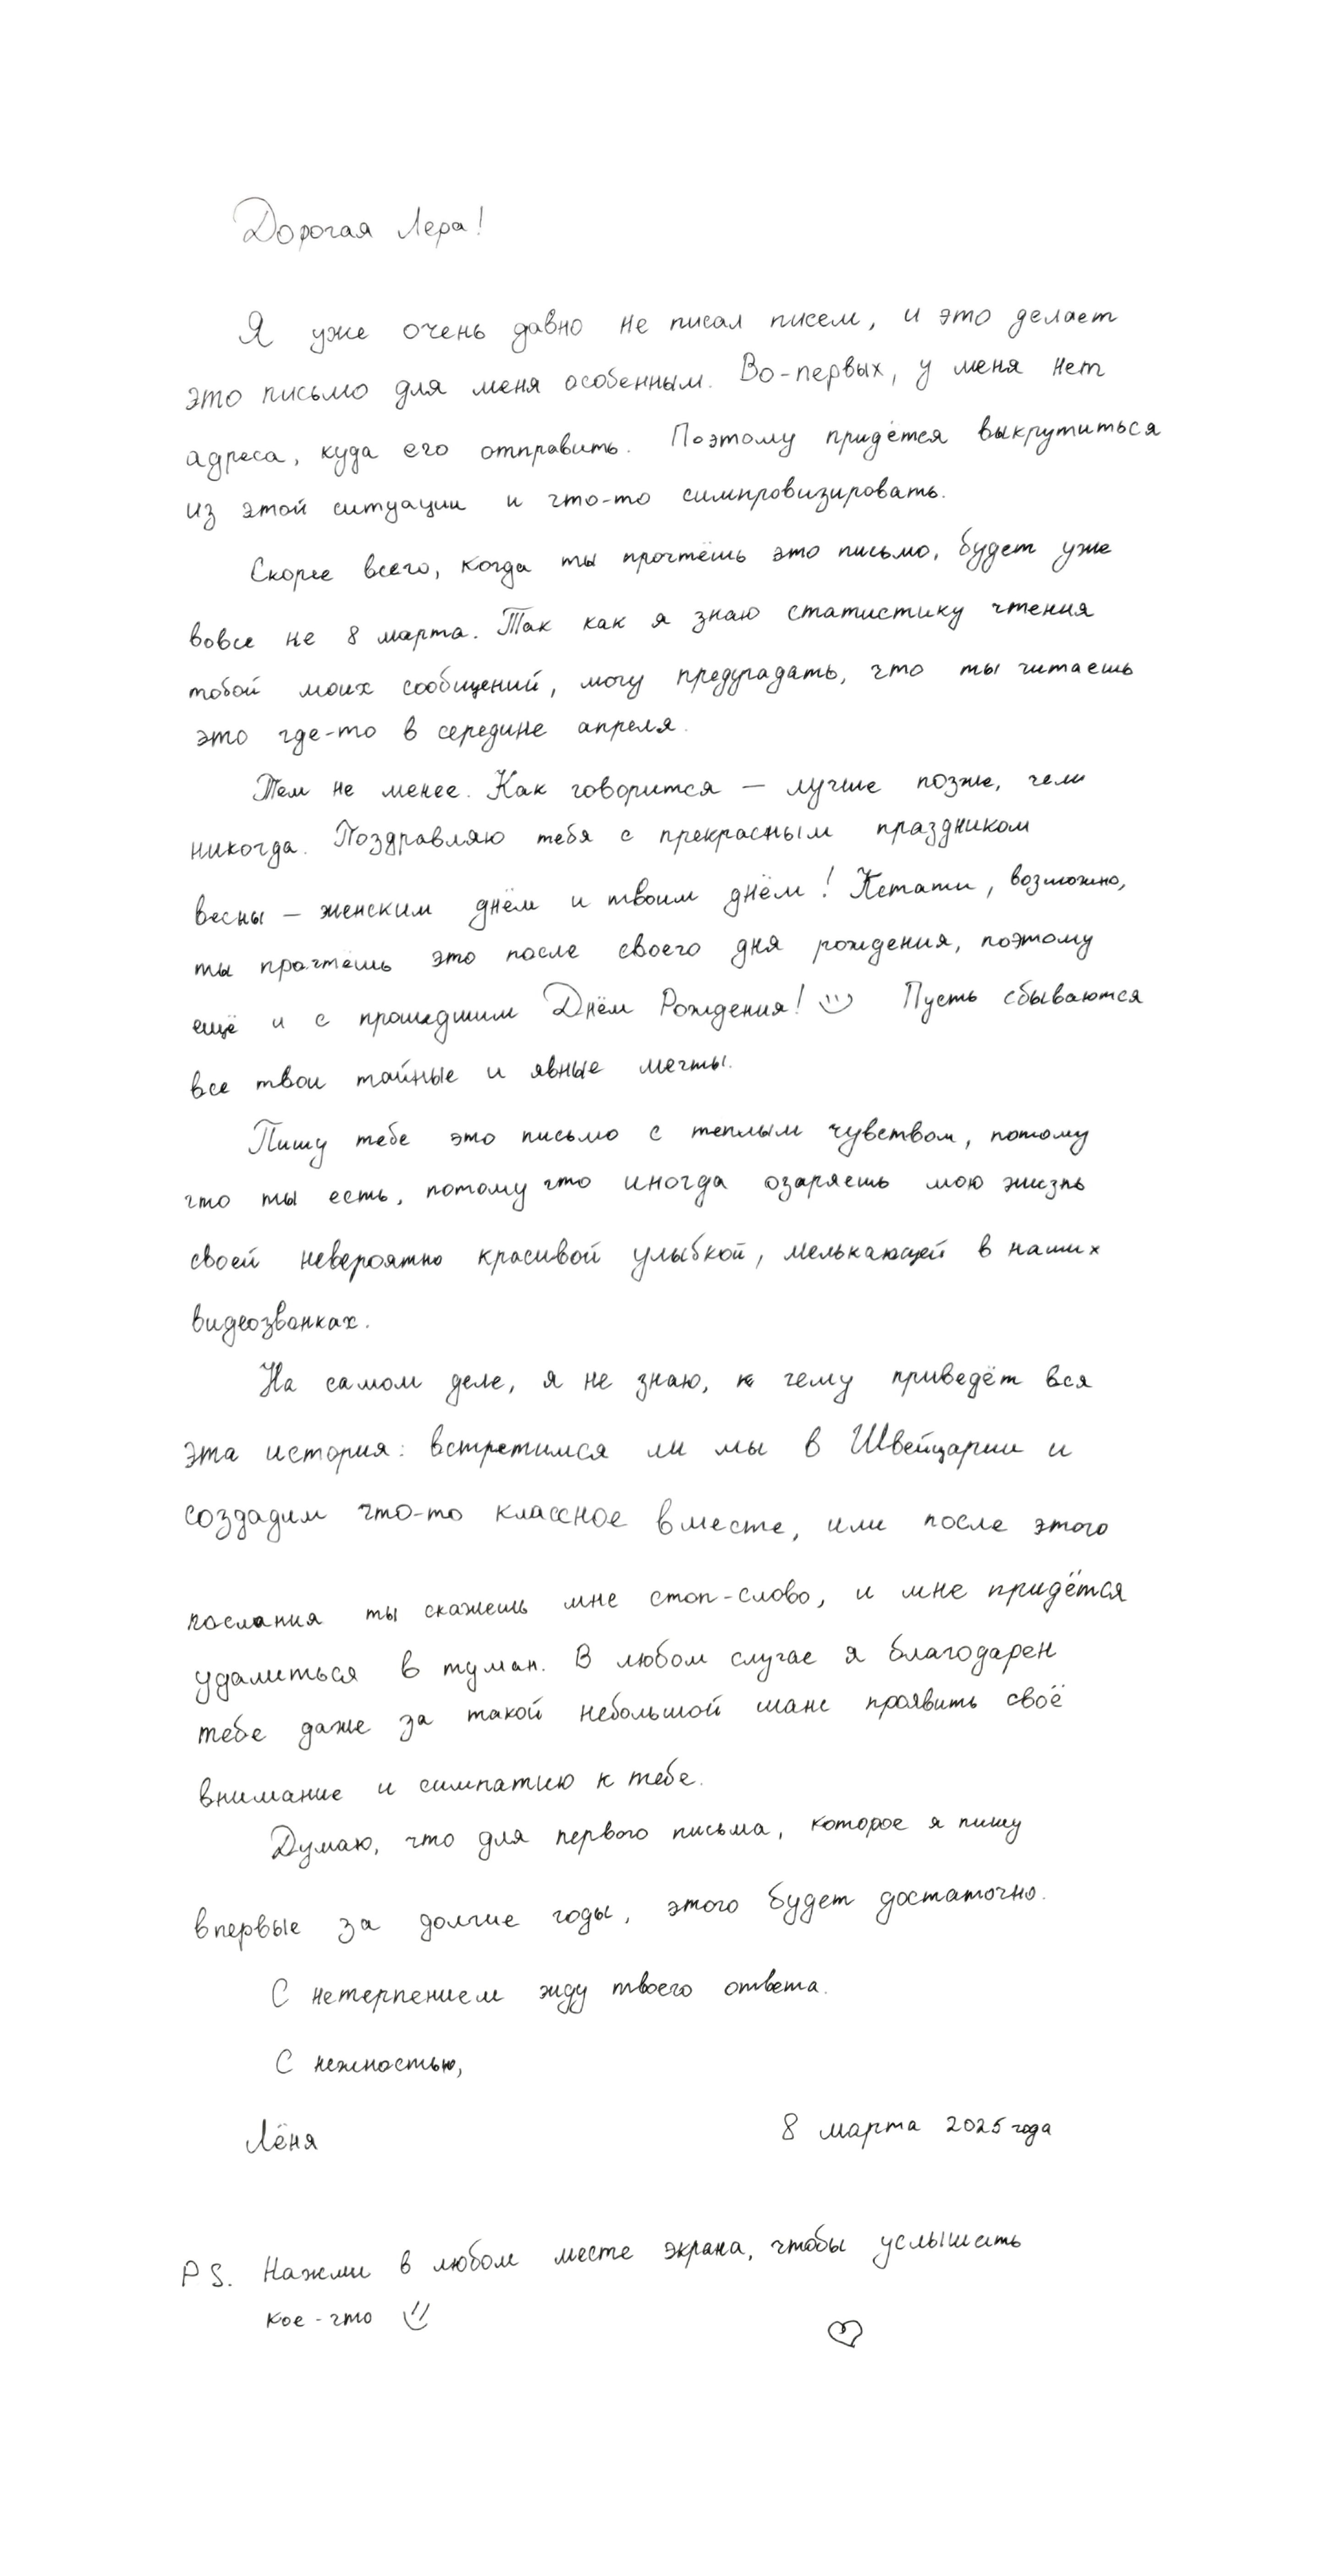 Дорогая Лера!
Я уже очень давно не писал писем, и это делает
это письмо для меня особенным. Во-первых, у меня нет
адреса, куда его отправить. Поэтому придётся выкрутиться
из этой ситуации и что-то симпровизировать.
Скорее всего, когда ты прочтёшь это письмо, будет уже
вовсе не 8 марта. Так как я знаю статистику чтения
тобой моих сообщений, могу предугадать, что ты читаешь
это где-то в середине апреля.
Тем не менее. Как говорится — лучше позже, чем
никогда. Поздравляю тебя с прекрасным праздником
весны — женским днём и твоим днём! Кстати, возможно,
ты прочтёшь это после своего дня рождения, поэтому
ещё и с прошедшим Днём Рождения! :) Пусть сбываются
все твои тайные и явные мечты.
Пишу тебе это письмо с теплым чувством, потому
что ты есть, потому что иногда озаряешь мою жизнь
своей невероятно красивой улыбкой, мелькающей в наших
видеозвонках.
На самом деле, я не знаю, к чему приведёт вся
эта история: встретимся ли мы в Швейцарии и
создадим что-то классное вместе, или после этого
послания ты скажешь мне стоп-слово, и мне придётся
удалиться в туман. В любом случае я благодарен
тебе даже за такой небольшой шанс проявить своё
внимание и симпатию к тебе.
Думаю, что для первого письма, которое я пишу
впервые за долгие годы, этого будет достаточно.
С нетерпением жду твоего ответа.
С нежностью,
Лёня 8 марта 2025 года
P.S. Нажми в любом месте экрана, чтобы услышать
кое-что :)